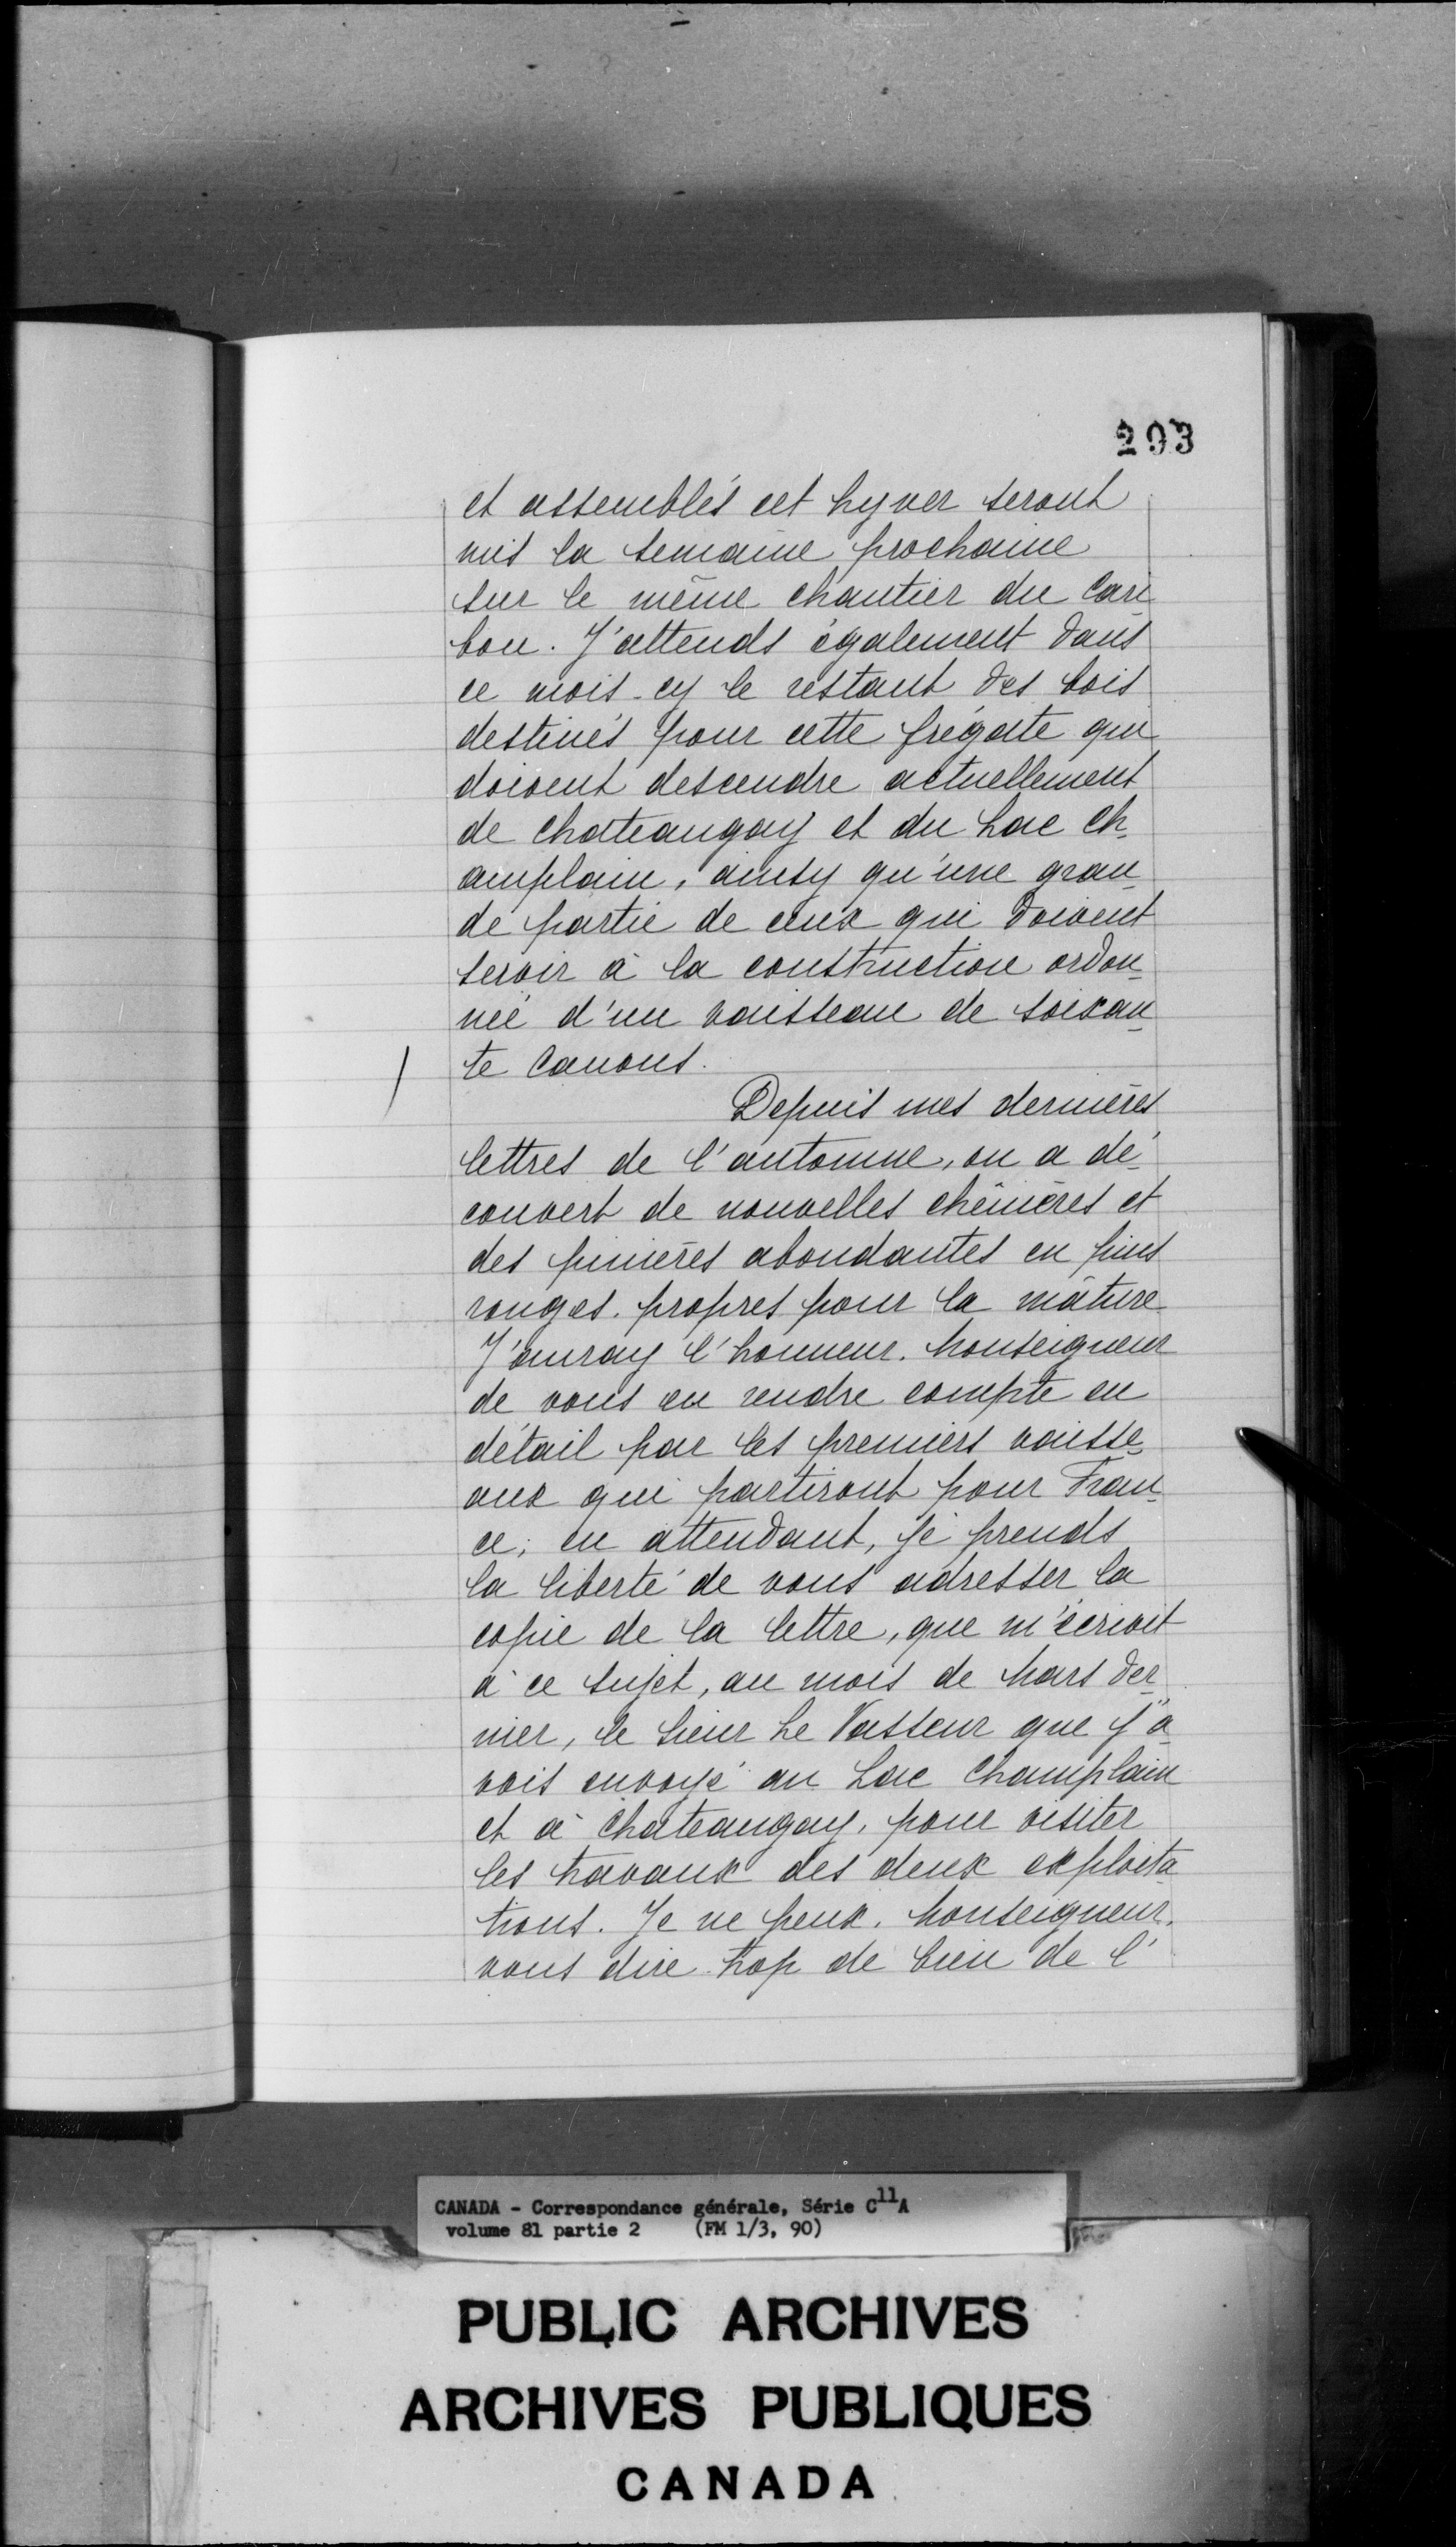 293
et assemblés cet hyver seront
mis la semaine prochaine
sur le même chantier du Cari
bou. J'attends également dans
ce mois-cy le restant des bois
destinés pour cette frégate qui
doivent descendre actuellement
de Chateaugay et du Lac Ch-
amplain, ainsy qu'une gran-
de partie de ceux qui doivent
servir à la construction ordon-
née d'un vaisseau de soixan-
te Canons.
Depuis mes dernières
lettres de l'automne, on a dé-
couvert de nouvelles chênières et
des pinières abondantes en pins
rouges propres pour la mâture
J'auray l'honneur. Monseigneur
de vous en rendre compte en
détail par les premiers vaisse-
aux qui partiront pour Fran-
ce; en attendant, je prends
la liberté de vous adresser la
copie de la lettre, que m'écrivit
à ce sujet, au mois de Mars der-
nier, le Sieur Le Vasseur que j'a-
vois envoyé au Lac Champlain
et à Chateaugay, pour visiter
les travaux des deux exploita-
tions. Je ne peux. Monseigneur,
vous dire trop de bien de l'
CANADA - Correspondance générale, Série C11A
volume 81 partie 2 (FM 1/3, 90)
PUBLIC ARCHIVES
ARCHIVES PUBLIQUES
CANADA